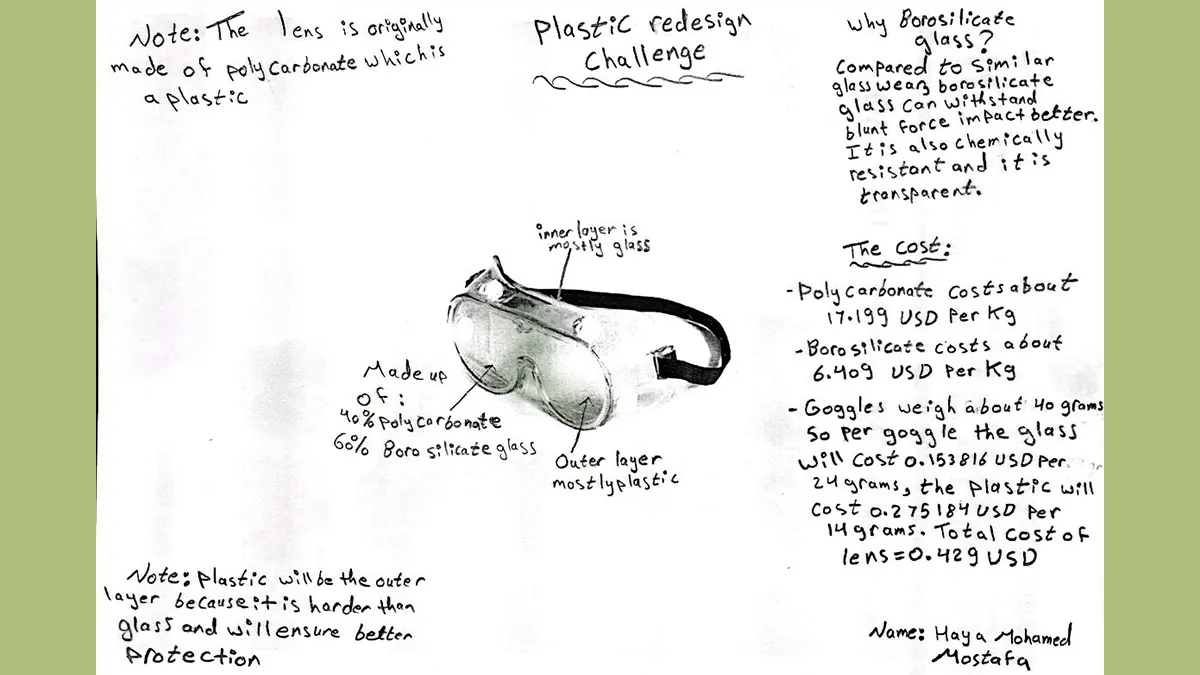 Note: The lens is originally
made of polycarbonate which is
a plastic
Plastic redesign
Challenge
Why Borosilicate
glass?
Compared to similar
glass wear, borosilicate
glass can withstand
blunt force impact better.
It is also chemically
resistant and it is
transparent.
inner layer is
mostly glass
Made up
of:
40% Polycarbonate
60% Boro silicate glass
Outer layer
mostly plastic
The cost:
- Polycarbonate costs about
17.199 USD Per Kg
- Borosilicate costs about
6.409 USD Per Kg
- Goggles weigh about 40 grams
So Per goggle the glass
will cost 0.153816 USD Per
24 grams, the plastic will
cost 0.275184 USD Per
14 grams. Total cost of
lens=0.429 USD
Note: plastic will be the outer
layer because it is harder than
glass and will ensure better
Protection
Name: Haya Mohamed
Mostafa